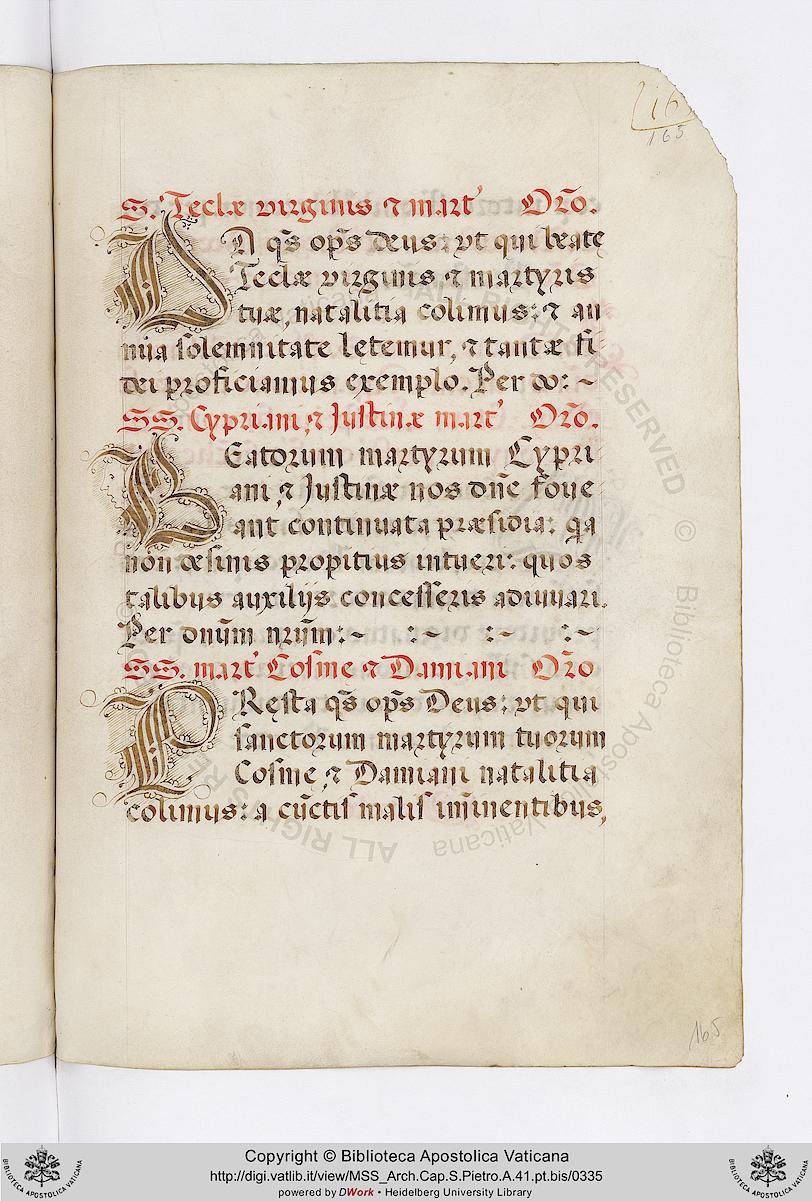 16
165
S. Teclæ virginis ⁊ mart' Orõ.
DA q̃s op̃s deus: vt qui beate
Teclæ virginis ⁊ martyris
tuæ, natalitia colimus: ⁊ an
nua solemnitate letemur, ⁊ tantæ fi
dei proficiamus exemplo. Per do: ~
SS. Cypriani, ⁊ Justinæ mart' Orõ.
BEatorum martyrum Cypri
ani, ⁊ Justinæ nos dñe foue
ant continuata præsidia: q̃a
non desinis propitius intueri: quos
talibus auxilijs concesseris adiuuari.
Per dnũm nrũm: ~ : ~ : ~ : ~
SS. mart' Cosme ⁊ Damiani Orõ
PResta q̃s op̃s Deus: vt qui
sanctorum martyrum tuorum
Cosme, ⁊ Damiani natalitia
colimus: a cũctis malis im̃inentibus,
165
ALL RIGHTS RESERVED © Biblioteca Apostolica Vaticana
Copyright © Biblioteca Apostolica Vaticana
http://digi.vatlib.it/view/MSS_Arch.Cap.S.Pietro.A.41.pt.bis/0335
powered by DWork • Heidelberg University Library
BIBLIOTECA APOSTOLICA VATICANA
BIBLIOTECA APOSTOLICA VATICANA